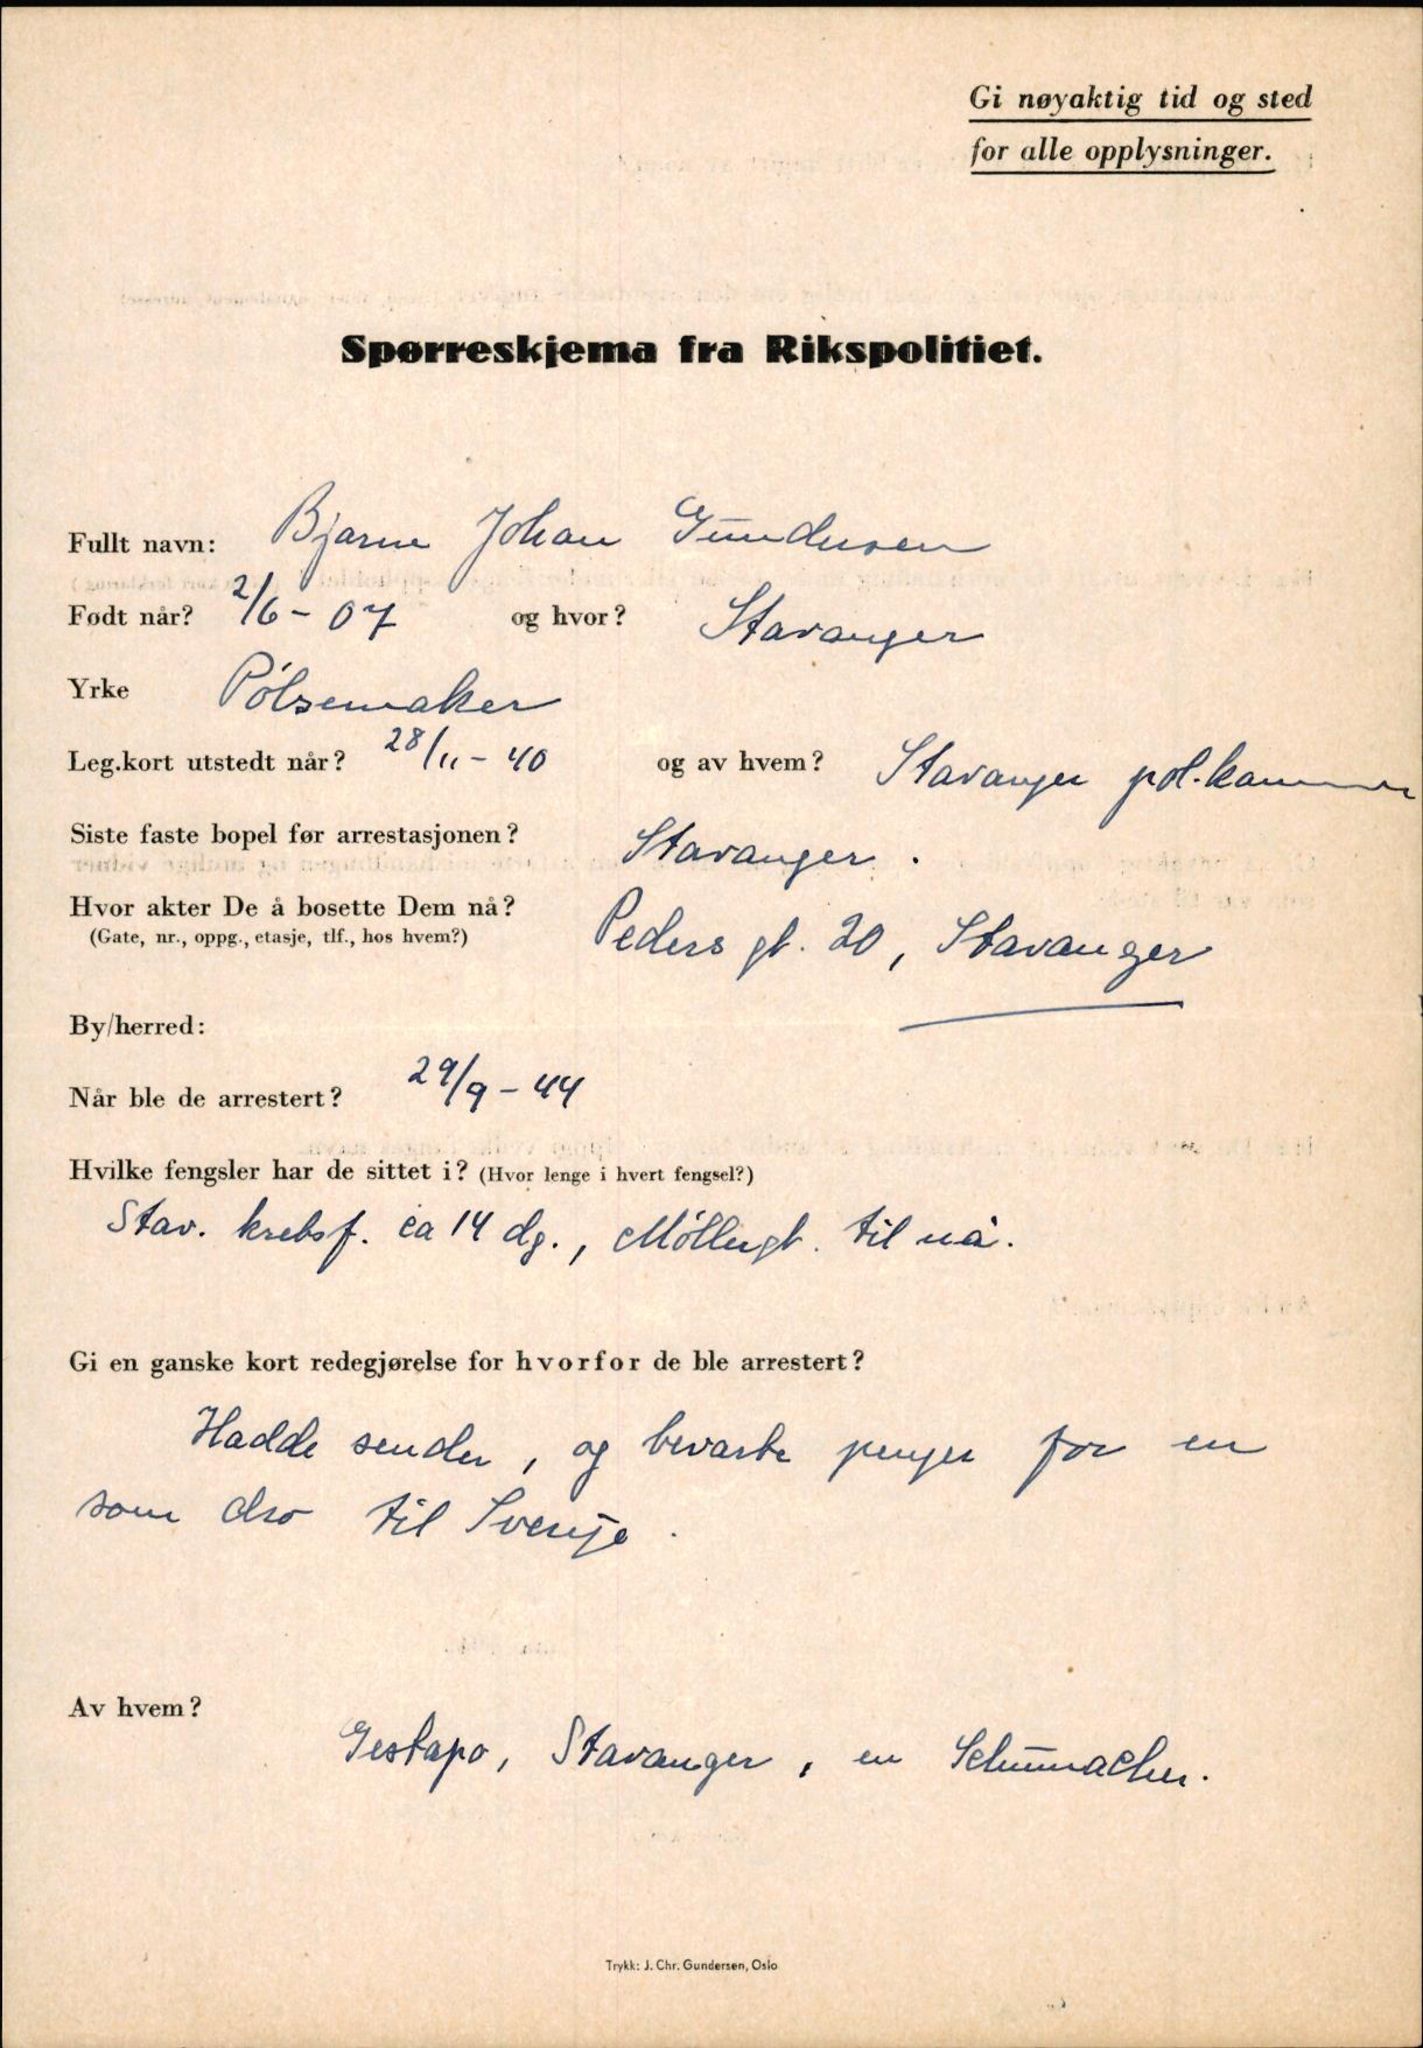 Gi nøyaktig tid og sted
for alle opplysninger.
Spørreskjema fra Rikspolitiet.
Fullt navn: Bjarne Johan Gundersen
Født når? 2/6 - 07 og hvor? Stavanger
Yrke Pölsemaker
Leg.kort utstedt når? 28/11 - 40 og av hvem? Stavanger pol.kammer
Siste faste bopel før arrestasjonen? Stavanger.
Hvor akter De å bosette Dem nå? Peders gt. 20, Stavanger
(Gate, nr., oppg., etasje, tlf., hos hvem?)
By/herred:
Når ble de arrestert? 29/9 - 44
Hvilke fengsler har de sittet i? (Hvor lenge i hvert fengsel?)
Stav. kretsf. ca 14 dg., Möllergt. til nå.
Gi en ganske kort redegjørelse for hvorfor de ble arrestert?
Hadde sender, og bevarte penger for en
som dro til Sverige.
Av hvem?
Gestapo, Stavanger, en Schumacher.
Trykk: J. Chr. Gundersen, Oslo